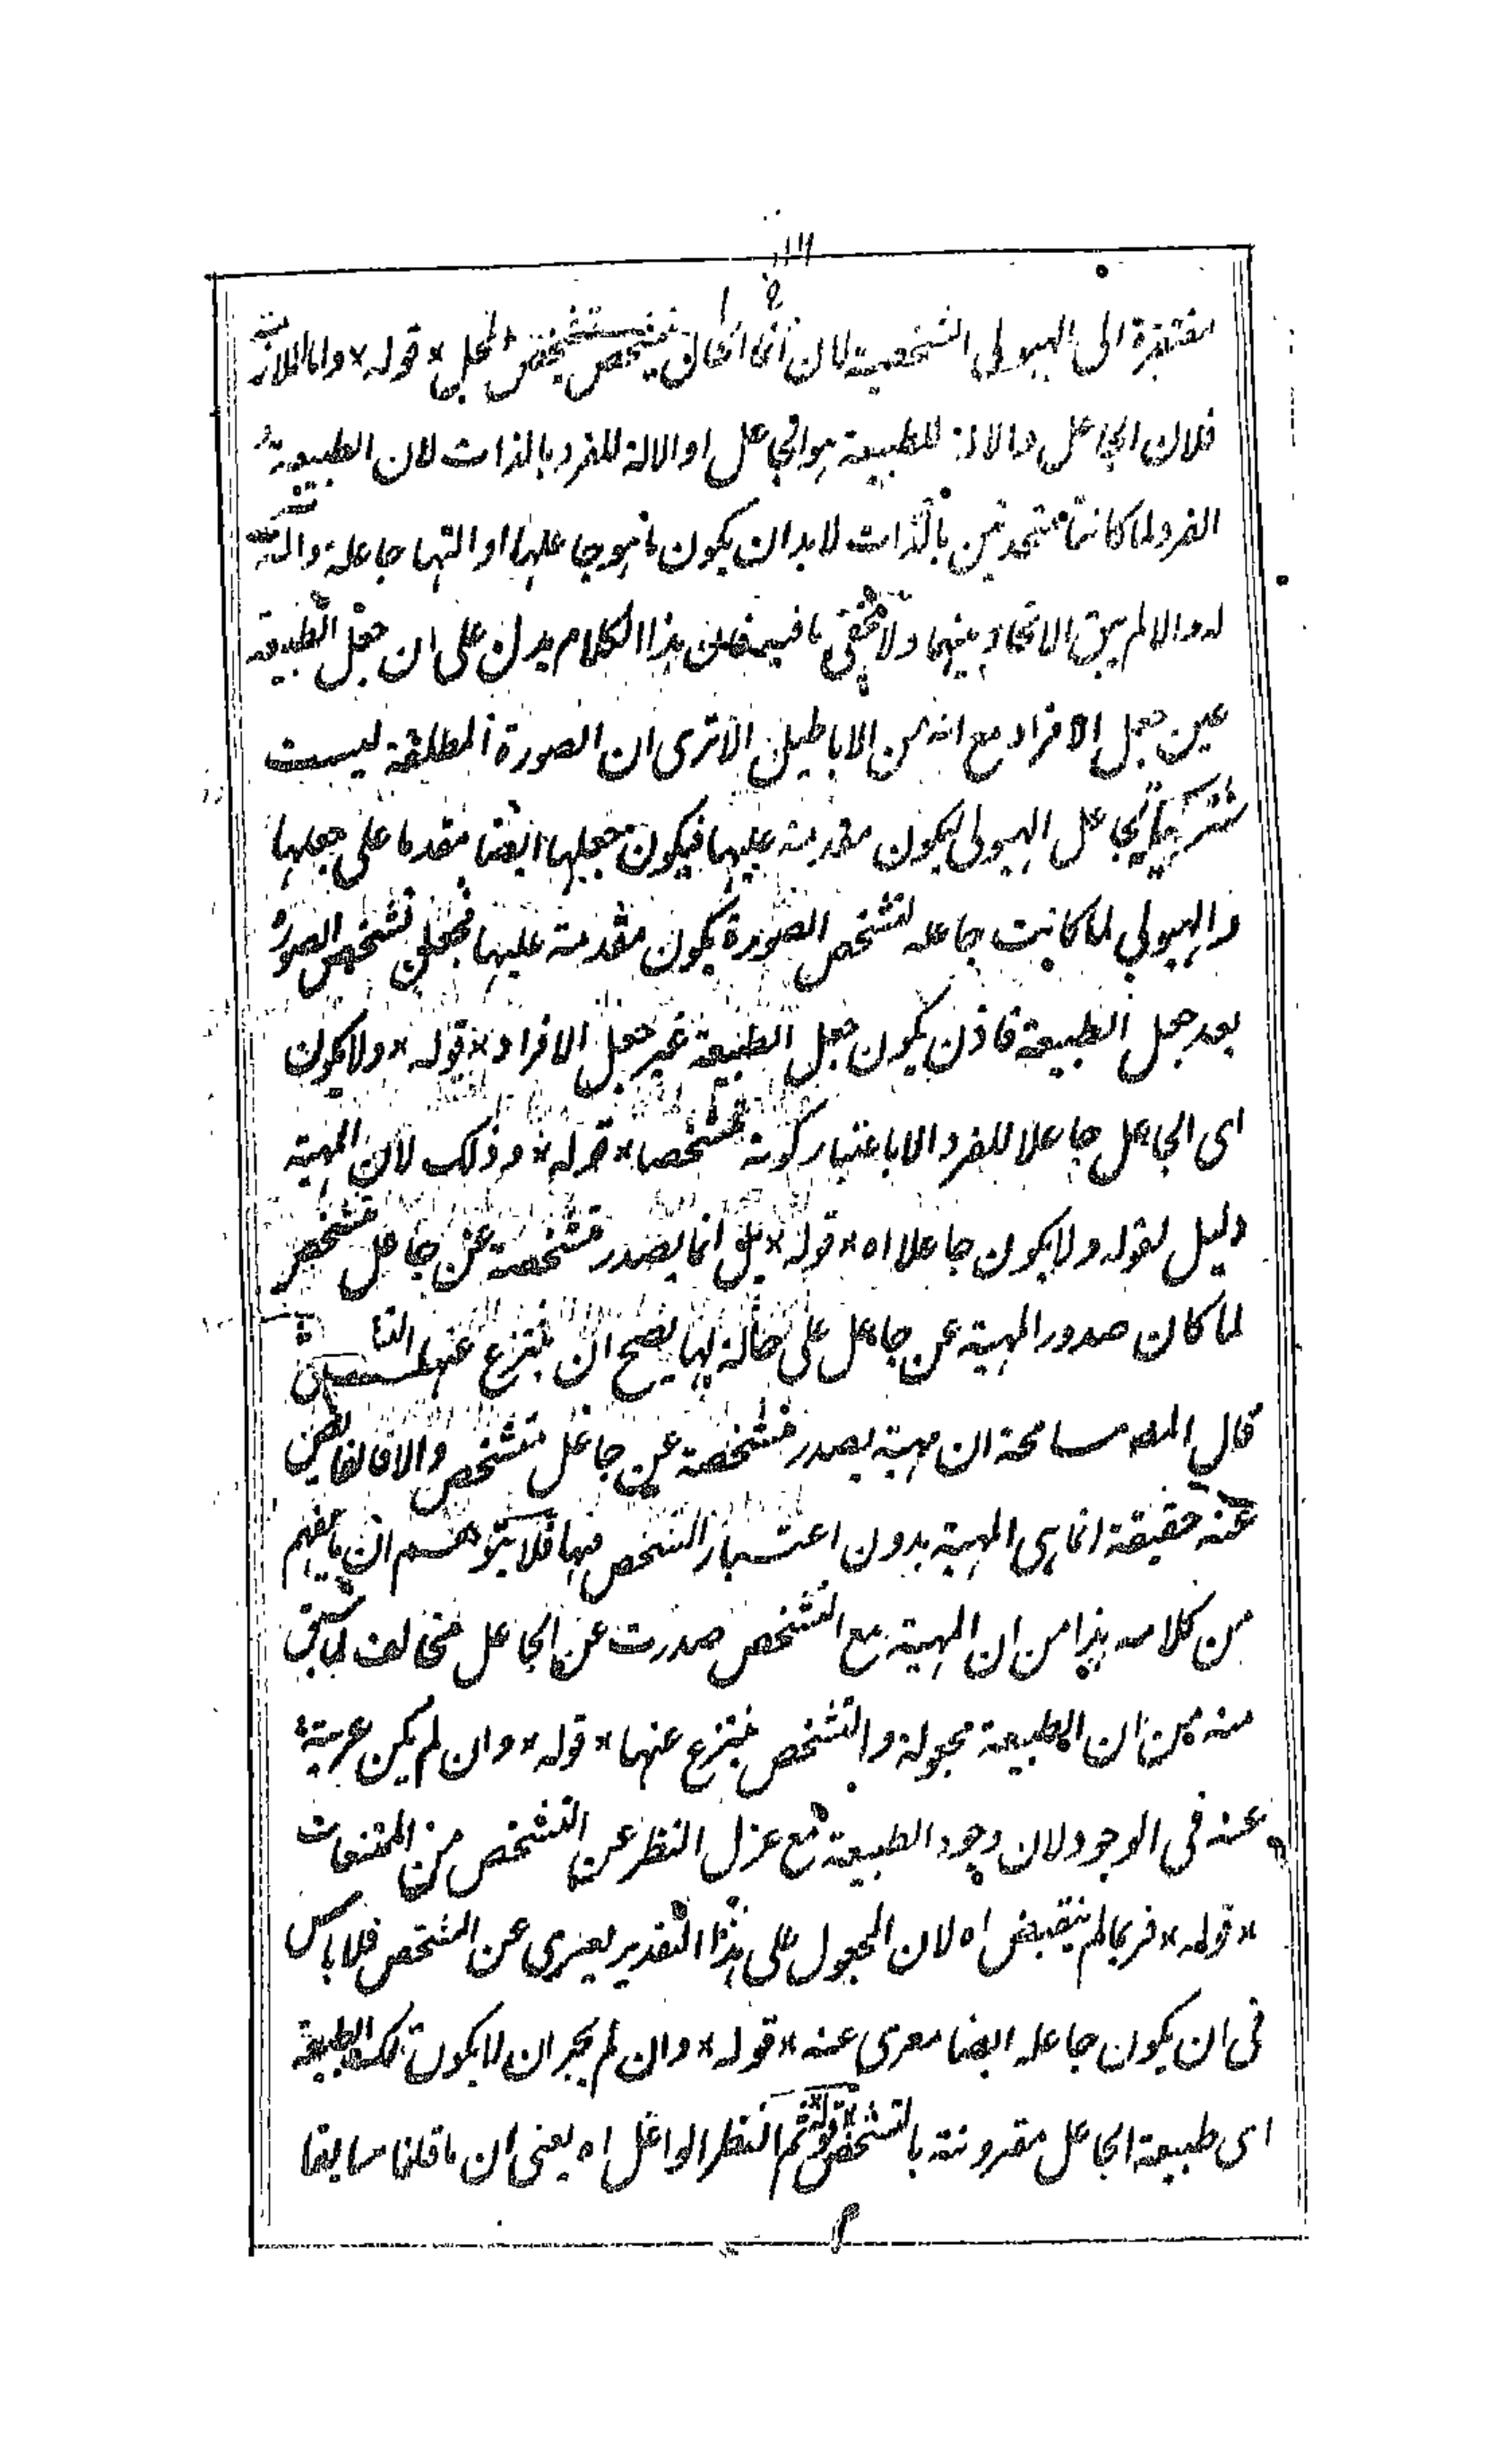 مفتقرة الى الهيولى الشخصية لان الحال يتشخص بتشخص المحل * قوله * واما الملازمة
فلان الجاعل والالة للطبيعة هو الجاعل او الالة للفرد بالذات لان الطبيعة و
الفرد لما كانتا متحدتين بالذات لا بد ان يكون ما هو جاعلها او التها جاعله والته
له والا لم يبق الاتحاد بينهما ولا يخفى ما فيه فان هذا الكلام يدل على ان جعل الطبيعة
عين جعل الافراد مع انه من الاباطيل الا ترى ان الصورة المطلقة ليست
شريكة لجاعل الهيولى فيكون مقدمة عليها فيكون جعلها ايضا مقدما على جعلها
والهيولى لما كانت جاعله لتشخص الصورة يكون مقدمة عليها فجعل تشخص الصورة
بعد جعل الطبيعة فاذن يكون جعل الطبيعة غير جعل الافراد * قوله * ولا يكون
اى الجاعل جاعلا للفرد الا باعتبار كونه متشخصا * قوله * وذلك لان المهية
دليل لقوله ولا يكون جاعلا اه * قوله * بل انما يصدر متشخصة عن جاعل متشخص
لما كان صدور المهية عن جاعل على حالة لها يصح ان ينتزع عنها
قال المصـ مسامحة ان مهية يصدر متشخصة عن جاعل متشخص والا فالفايض
عنه حقيقة انما هى المهية بدون اعتبار التشخص فيها فلا يتوهم ان ما يفهم
من كلامه هذا من ان المهية مع التشخص صدرت عن الجاعل مخالف لما سبق
منه من ان الطبيعة مجعولة والتشخص ينتزع عنها * قوله * وان لم يكن عرية
عنه فى الوجود لان وجود الطبيعة مع عزل النظر عن التشخص من الممتنعات
* قوله * فربما لم ينقبض اه لان المجعول على هذا التقدير يعرى عن التشخص فلا باس
فى ان يكون جاعله ايضا معرى عنه * قوله * وان لم يجز ان لا يكون تلك الطبيعة
اى طبيعة الجاعل مقرونة بالتشخص * قوله * ثم النظر الواغل اه يعنى ان ما قلنا سابقا